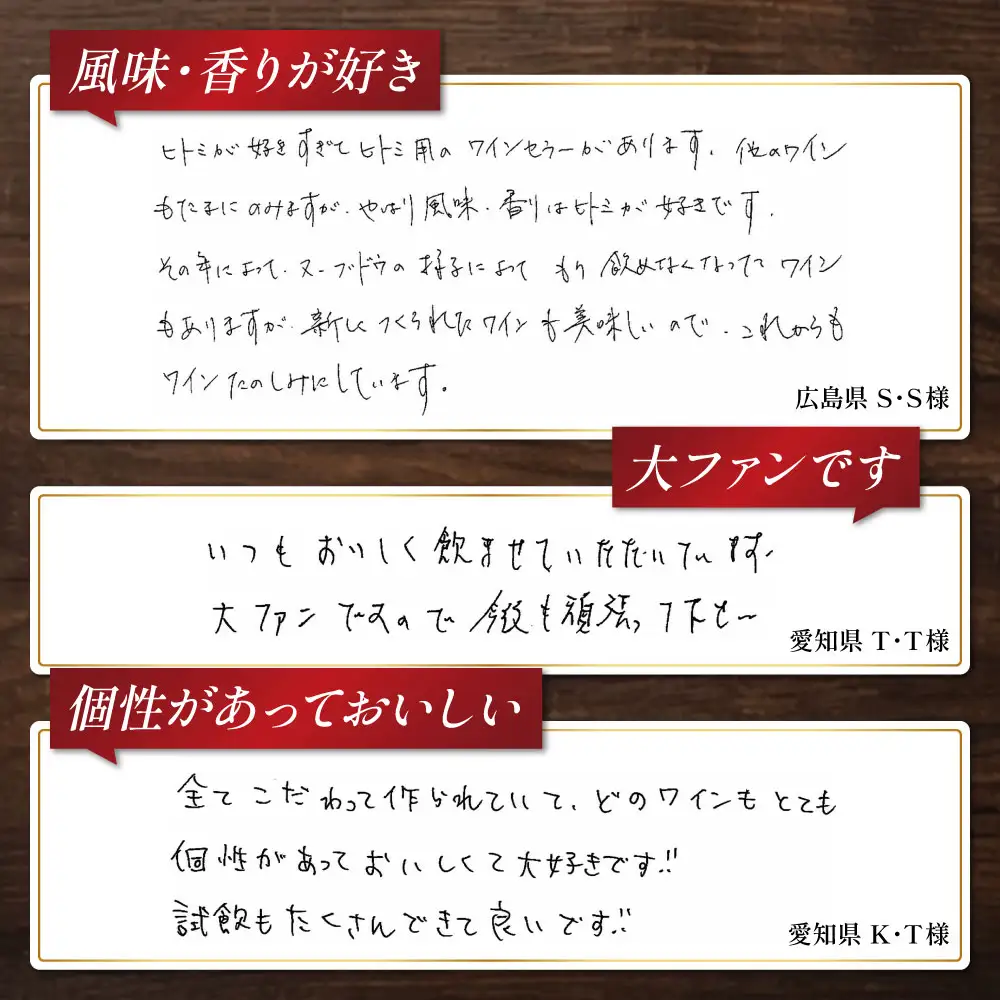 風味・香りが好き
ヒトミが好きすぎてヒトミ用のワインセラーがあります。他のワイン
もたまにのみますが、やはり風味・香りはヒトミが好きです。
その年によって、ヌーブドウの様子によって もう飲めなくなってワイン
もありますが、新しくつくられたワインも美味しいので、これからも
ワインたのしみにしています。
広島県 S・S様
大ファンです
いつもおいしく飲ませていただいています。
大ファンですので今後も頑張って下さ〜
愛知県 T・T様
個性があっておいしい
全てこだわって作られていて、どのワインもとても
個性があっておいしくて大好きです!!
試飲もたくさんできて良いです!!
愛知県 K・T様